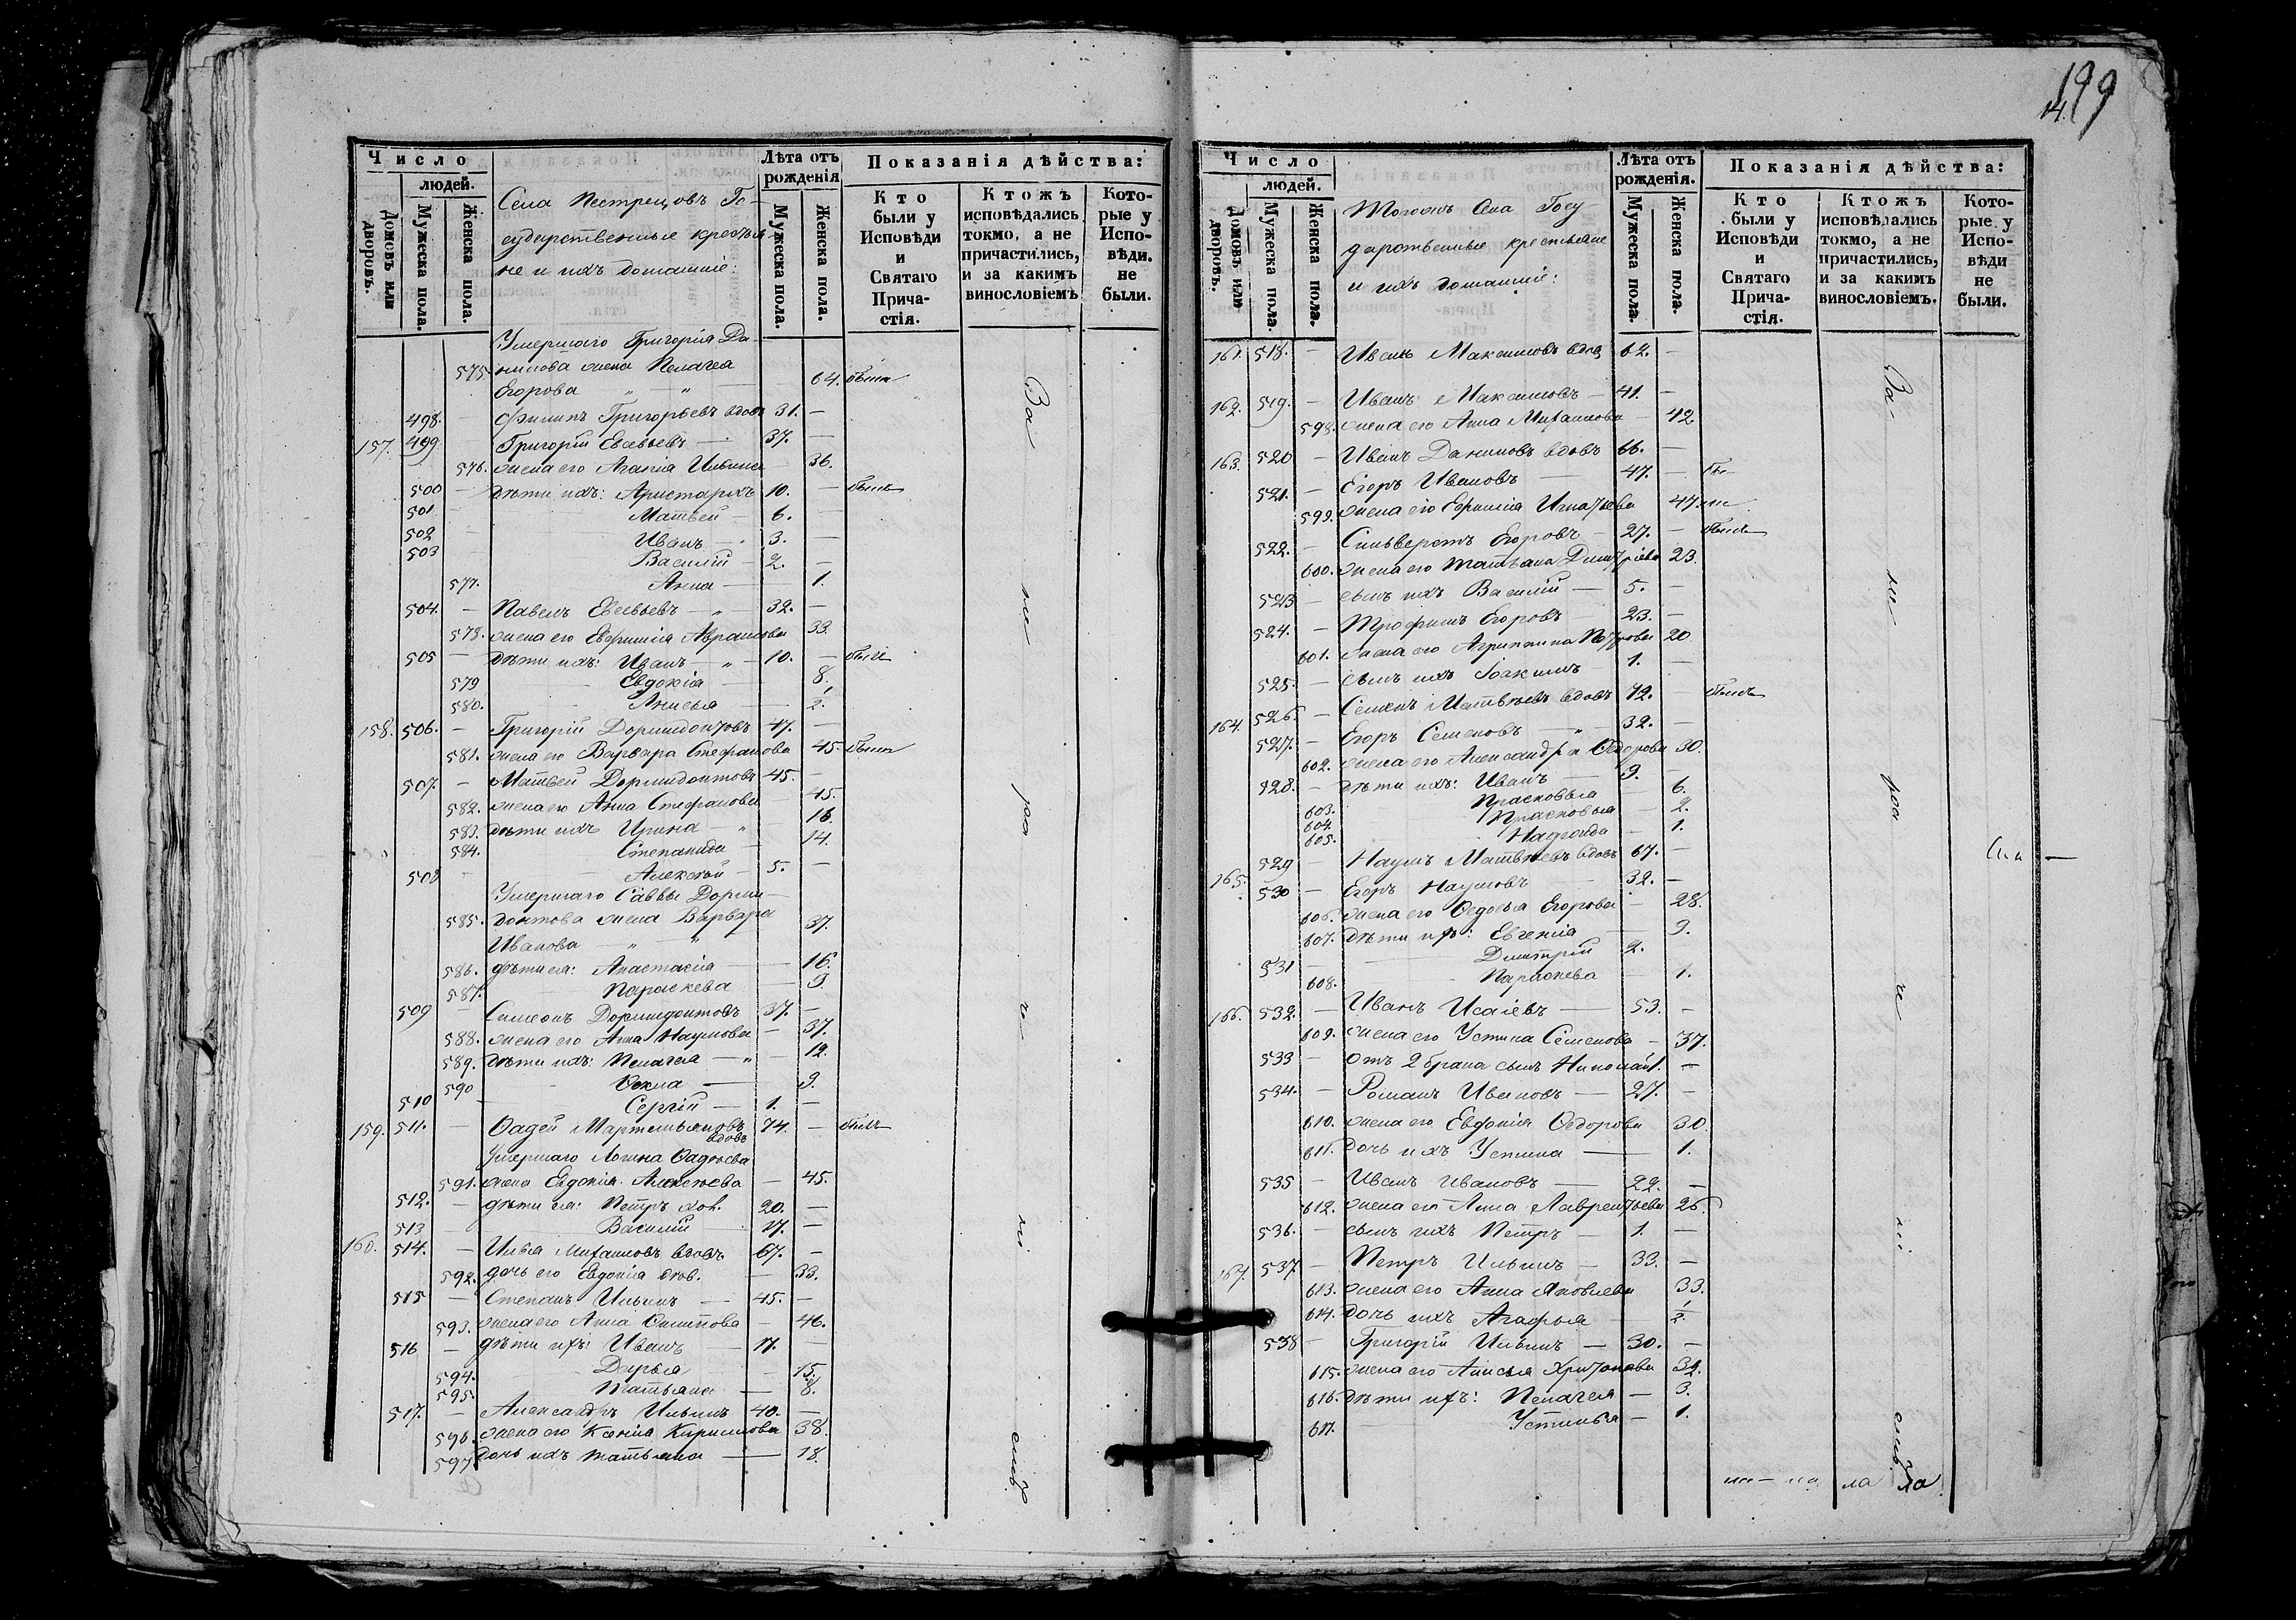 199
14.
Число
людей.
Домовъ или дворовъ.
Мужеска пола.
Женска пола.
Села Пестрецовъ Го-
сударственные крестья-
не и ихъ домашніе:
Лѣта отъ рожденія
Мужеска пола.
Женска пола.
Показанія дѣйства:
Кто были у Исповѣди и Святаго Прича-стія.
Ктожъ исповѣдались токмо, а не причастились, и за какимъ винословіемъ
Кото-рые у Испо-вѣди. не были.
Умершаго Григорія Да-
575. нилова жена Пелагея
Егорова " " 64. была
498. — Филипъ Григорьевъ вдовъ 31. —
157. 499 Григорій Евсевьевъ — 37. —
576. жена его Агапія Ильина — 36.
500 — дѣти ихъ: Аристархъ 10. — былъ
501 — Матвей — 6. —
502 — Иванъ — 3. —
503 Василій — 2. —
577. Анна — 1.
504. — Павелъ Евсевьевъ — " — 32. —
578. жена его Евфимія Аврамова 33.
505 — дѣти ихъ: Иванъ — " — 10. — былъ
579 Евдокія — 8.
580. Анисья — 1/2.
158. 506. — Григорій Дормидонтовъ 47. —
581. жена его Варвара Стефанова 45. была
507. — Матвей Дормидонтовъ 45. —
582. жена его Анна Стефанова — 45.
583. дѣти ихъ Ирина — " — 16.
584. Степанида — 14.
508 — Алексѣй — 5. —
Умершаго Саввы Дорми-
585. донтова жена Варвара 37.
Иванова — " "
586. дѣти ея: Анастасія — 16.
587. Параскева — 9.
509 — Симеонъ Дормидонтовъ 37. —
588. жена его Анна Наумова — 37.
589. дѣти ихъ: Пелагея — " — 12.
590 Ѳекла — 9.
510 — Сергій — 1. —
159. 511. — Ѳадей Мартемьяновъ 74. — былъ
вдовъ
Умершаго Логина Ѳадѣева
591. жена Евдокія Алексѣева — 45.
512. — дѣти ея: Петръ хол. 20. —
513 — Василій 17. —
160. 514. — Илья Михаиловъ вдовъ 67. —
592. дочь его Евдокія — 33.
515 — Степанъ Ильинъ — 45. —
593. жена его Анна Филипова — 46.
516 — дѣти ихъ: Иванъ — 17. —
594. Дарья — 15.
595. Татьяна — 8.
517. — Александръ Ильинъ 40. —
596. жена его Ксенія Кирилова 38.
597 дочь ихъ Татьяна — 18.
За не ра чи ні емъ
Число
людей.
Домовъ или дворовъ.
Мужеска пола.
Женска пола.
Тогожъ Села Госу-
дарственные крестьяне
и ихъ домашніе:
Лѣта отъ рожденія.
Мужеска пола.
Женска пола.
Показанія дѣйства:
Кто были у Исповѣди и Святаго Прича-стія.
Ктожъ исповѣдались токмо, а не причастились, и за какимъ винословіемъ.
Кото-рые у Испо-вѣди не были.
161. 518. — Иванъ Максимовъ вдов 62. —
162. 519. — Иванъ Максимовъ — 41. —
598. жена его Анна Михаилова — 42
163. 520 — Иванъ Даниловъ вдовъ 66. —
521. — Егоръ Ивановъ 47. — бы-
599. жена его Евфимія Игнатьева 47. ли
522. — Сильверстъ Егоровъ — 27. — былъ
600. жена его Татьяна Дмитріева 23.
523 — сынъ ихъ Василій — 5. —
524. — Трофимъ Егоровъ — 23. —
601. жена его Агрипина Петрова 20
525. — сынъ ихъ Іоакимъ 1. —
164. 526. — Семенъ Матвѣевъ вдовъ 72. — былъ
527. — Егоръ Семеновъ — " 32. —
602. жена его Александра Ѳедорова 30.
528. — дѣти ихъ: Иванъ — 9. —
603. Прасковья — 6.
604. Прасковья — 2.
605. Надежда — 1.
165. 529 — Наумъ Матвѣевъ вдовъ 67. —
530 — Егоръ Наумовъ — 32. —
606. жена его Ѳедосья Егорова — 28.
607. дѣти ихъ: Евгенія — 9.
531 — Дмитрій 2.
608. Параскева — 1.
166. 532. — Иванъ Исаіевъ — 53. —
609. жена его Устина Семенова — 37.
533 — отъ 2 брака сынъ Николай 1. —
534. — Романъ Ивановъ — 27. —
610. жена его Евдокія Ѳедорова 30.
611. дочь ихъ Устина — 1.
535 — Иванъ Ивановъ — 22. —
612. жена его Анна Лаврентьева 26.
536. — сынъ ихъ Петръ — 1. —
167. 537 — Петръ Ильинъ — 33. —
613. жена его Анна Яковлева 33.
614. дочь ихъ Агафья — 1/2.
538 — Григорій Ильинъ — 30. —
615. жена его Анисья Харитонова 32.
616. дѣти ихъ: Пелагея — 3.
617. Устинья — 1.
За- не ра че ні емъ